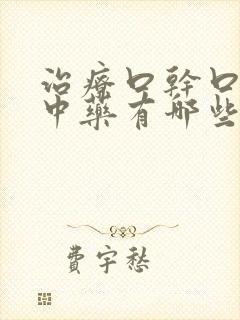 治療口幹口
中藥有哪些
費宇愁